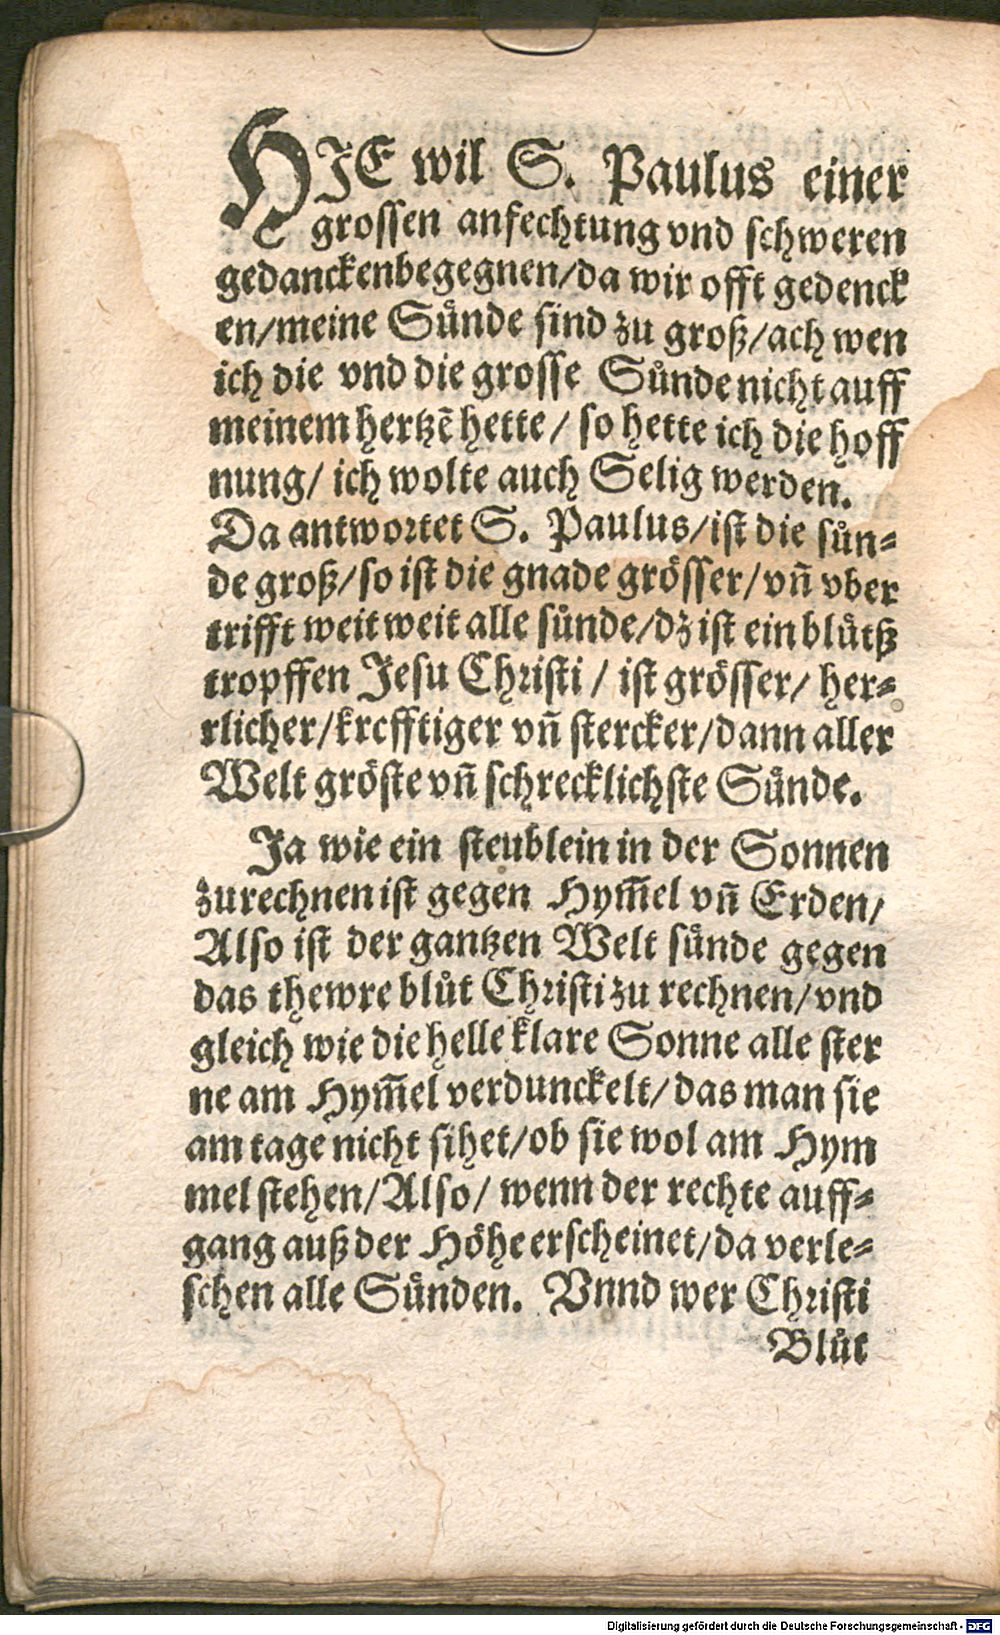 HJE wil S. Paulus einer
grossen anfechtung vnd schweren
gedanckenbegegnen/da wir offt gedenck
en/meine Sůnde sind zu groß/ach wen
ich die vnd die grosse Sůnde nicht auff
meinem hertzẽ hette/ so hette ich die hoff
nung/ ich wolte auch Selig werden.
Da antwortet S. Paulus/ist die sůn⸗
de groß/so ist die gnade grösser/vñ vber
trifft weit weit alle sůnde/dz ist ein blůtß
tropffen Jesu Christi / ist grösser/ her⸗
rlicher/krefftiger vñ stercker/dann aller
Welt gröste vñ schrecklichste Sůnde.
Ja wie ein steublein in der Sonnen
zurechnen ist gegen Hym̃el vñ Erden/
Also ist der gantzen Welt sůnde gegen
das thewre blůt Christi zu rechnen/vnd
gleich wie die helle klare Sonne alle ster
ne am Hym̃el verdunckelt/das man sie
am tage nicht sihet/ob sie wol am Hym
mel stehen/Also/ wenn der rechte auff⸗
gang auß der Höhe erscheinet/da verle⸗
schen alle Sůnden. Vnnd wer Christi
Blůt
Digitalisierung gefördert durch die Deutsche Forschungsgemeinschaft - DFG